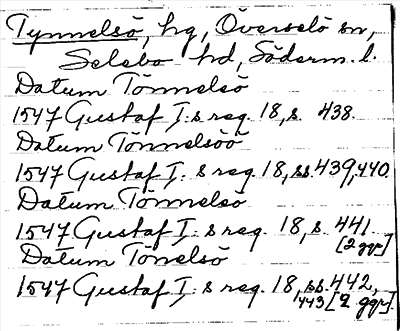 Tynnelsö, hg, Överselö sn,
Selebo hd, Söderm. l.
Datum Tönnelsö
1547 Gustaf I:s reg. 18, s. 438.
Datum Tönnelsöö
1547 Gustaf I:s reg. 18, ss. 439, 440.
Datum Tönnelsö
1547 Gustaf I:s reg. 18, s. 441
[2 ggr].
Datum Tönelsö
1547 Gustaf I:s reg. 18, ss. 442,
443 [2 ggr].